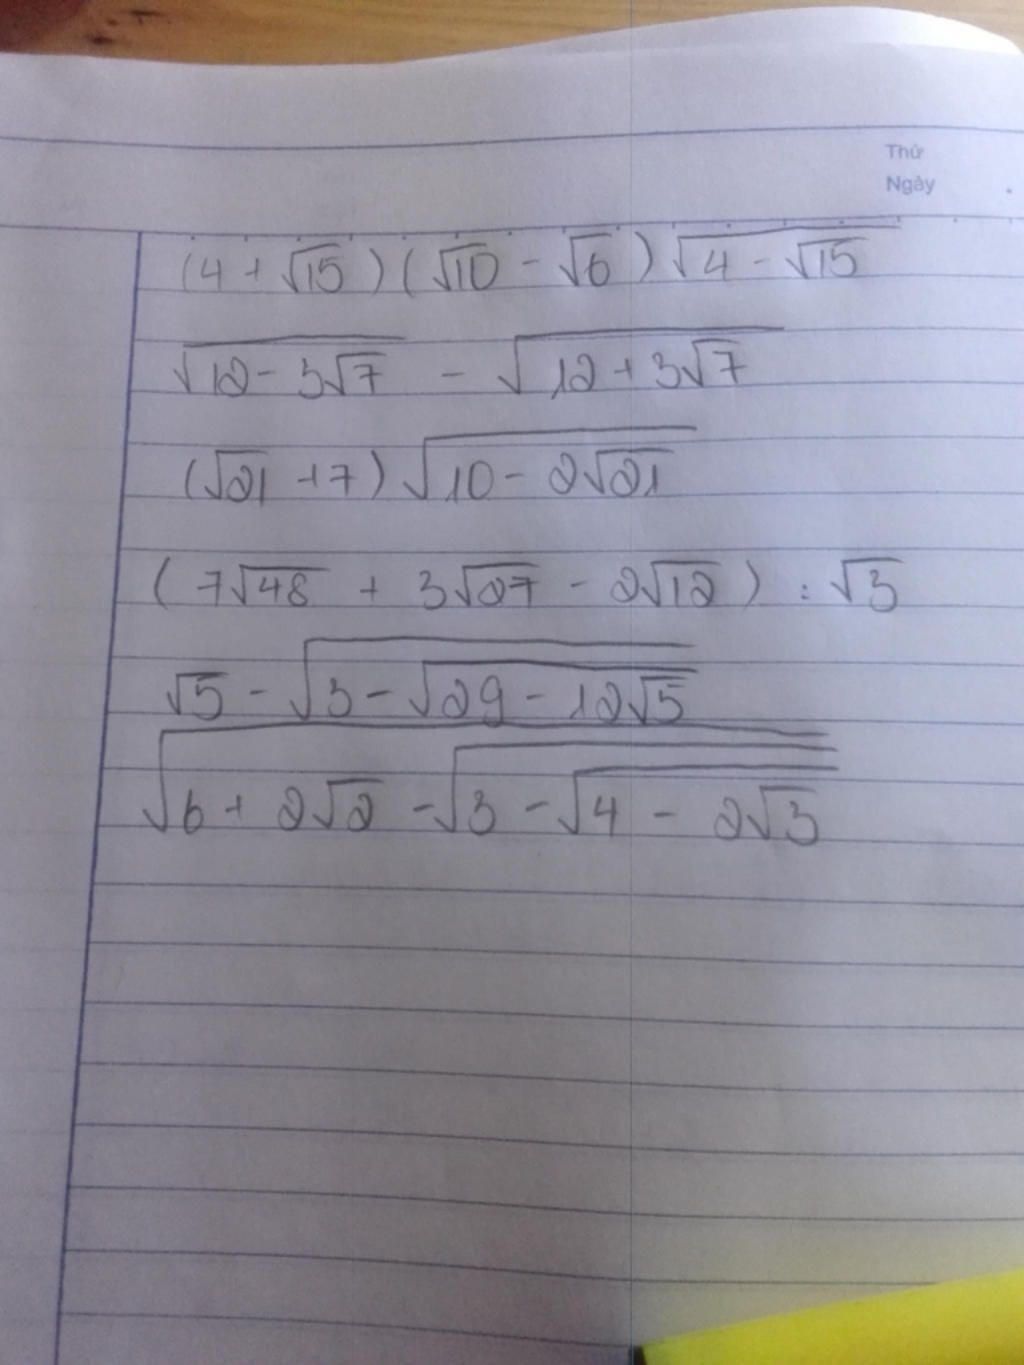 Thứ
Ngày
(4 + √15)(√10 - √6)√(4 - √15)
√(12 - 3√7) - √(12 + 3√7)
(√21 + 7)√(10 - 2√21)
(7√48 + 3√27 - 2√12) : √3
√5 - √(3 - √(29 - 12√5))
√(6 + 2√2 - √(3 - √(4 - 2√3)))